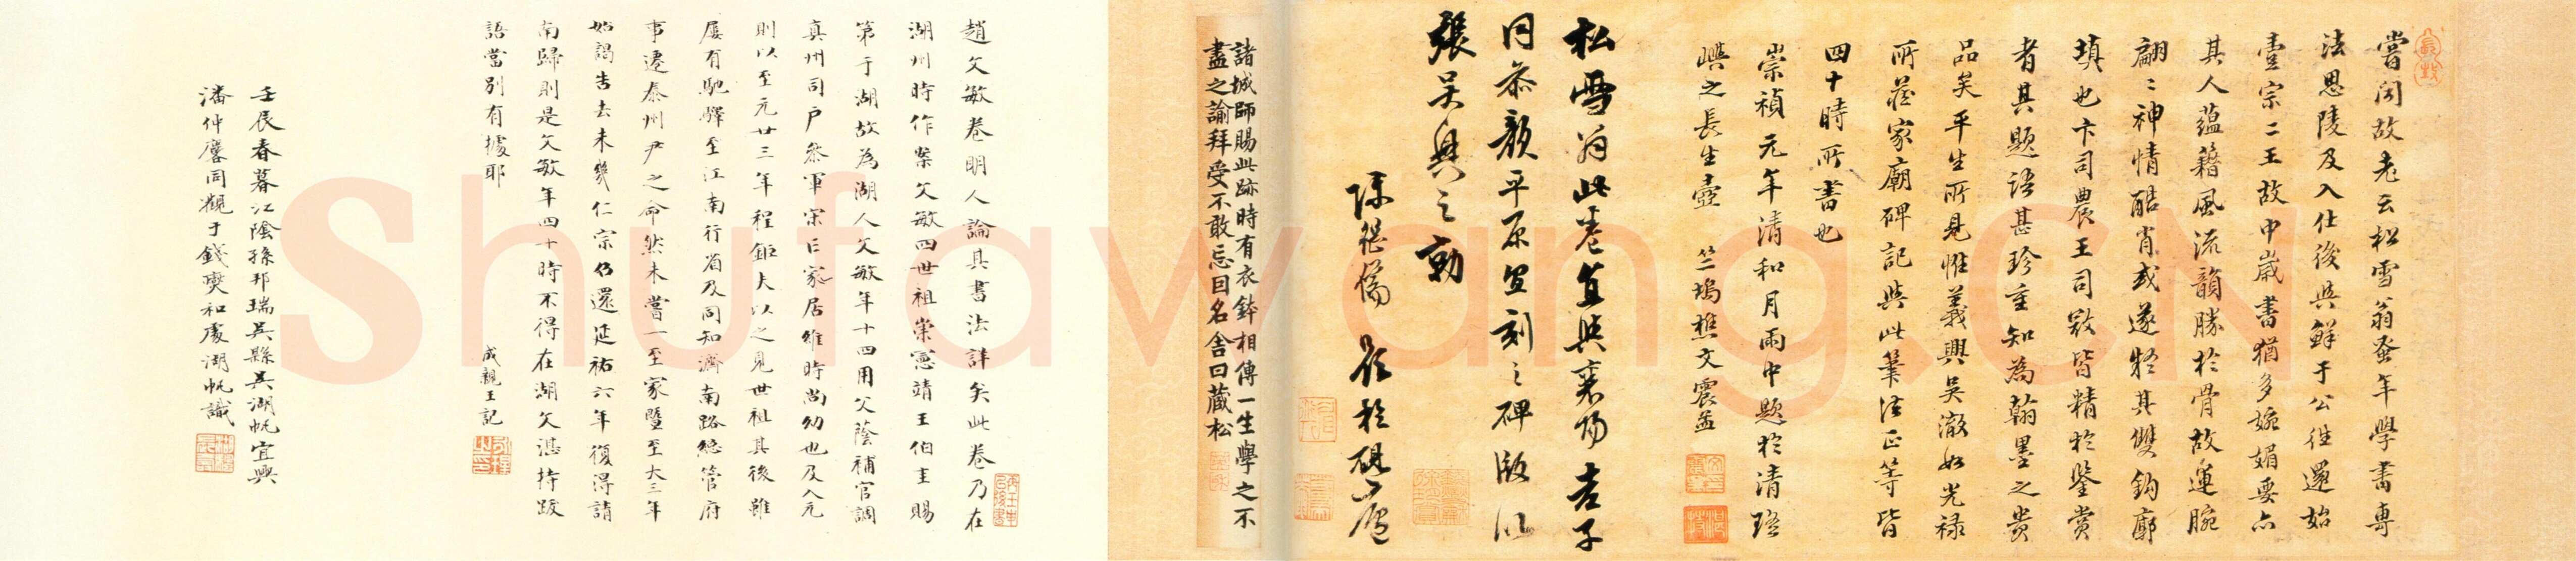 嘗聞故老云松雪翁蚤年學書專
法思陵及入仕後與鮮于公往還始
壹宗二王故中歲書猶多婉媚要亦
其人蘊藉風流韻勝於骨故運腕
翩〻神情酷肖或遂疑其雙鉤廓
填也卞司農王司寇皆精於鑒賞
者其題語甚珍重知為翰墨之貴
品矣平生所見惟義興吳澈如光祿
所藏家廟碑記與此筆法正等皆
四十時所書也
崇禎元年清和月雨中題於清瑤
嶼之長生壺 竺塢樵文震孟
松雪翁此卷直與襄陽老子
同參顏平原宜刻之碑版以
張吳興之勁
陳繼儒 觀於硯廬
諸城師賜此跡時有衣鉢相傳一生學之不
盡之諭拜受不敢忘因名舍曰藏松
趙文敏卷明人論其書法詳矣此卷乃在
湖州時作案文敏四世祖崇憲靖王伯圭賜
第于湖故為湖人文敏年十四用父蔭補官調
真州司戶參軍宋亡家居維時尚幼也及入元
則以至元廿三年程鉅夫以之見世祖其後雖
屢有馳驛至江南行省及同知濟南路總管府
事遷泰州尹之命然未嘗一至家暨至大三年
始謁告去未幾仁宗仍還延祐六年復得請
南歸則是文敏年四十時不得在湖文湛持跋
語當別有據耶
成親王記
壬辰春暮江陰孫邦瑞吳縣吳湖帆宜興
潘仲麐同觀于錢燮和處湖帆識
Shufawang.CN